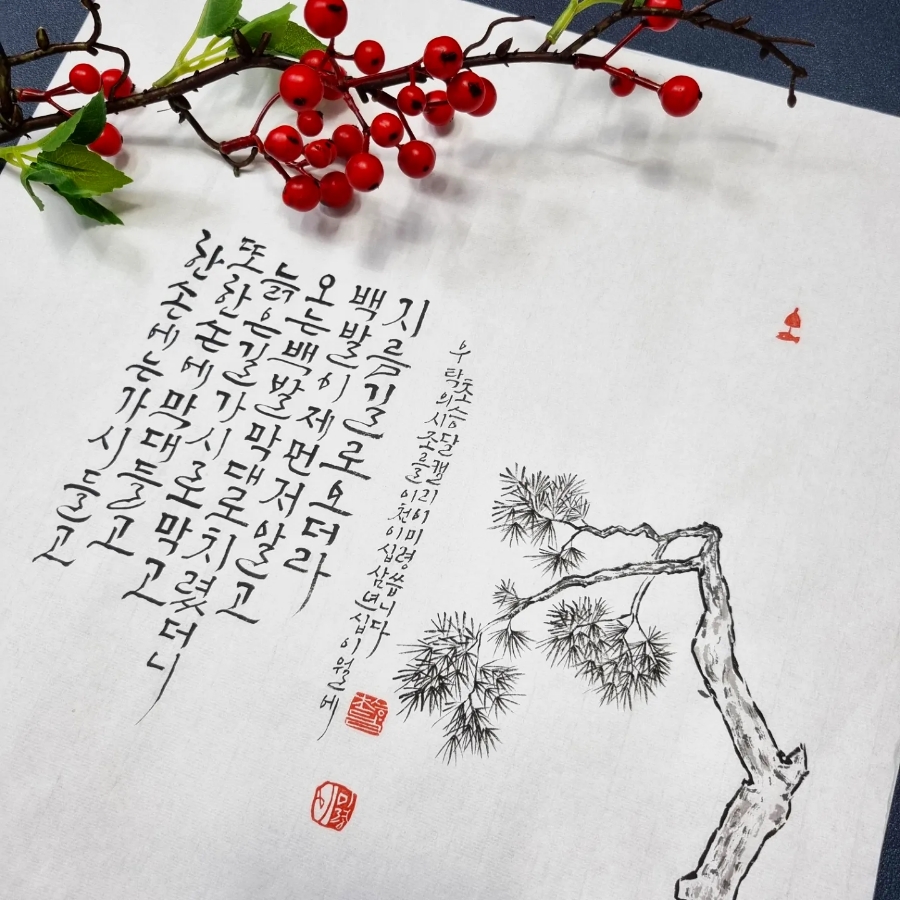 한손에는가시들고
또한손에막대들고
늙은길가시로막고
오는백발막대로치렸더니
백발이제먼저알고
지름길로오더라
우탁의시조를이천이십삼년십이월에
초승달캘리이미령씁니다
이미령